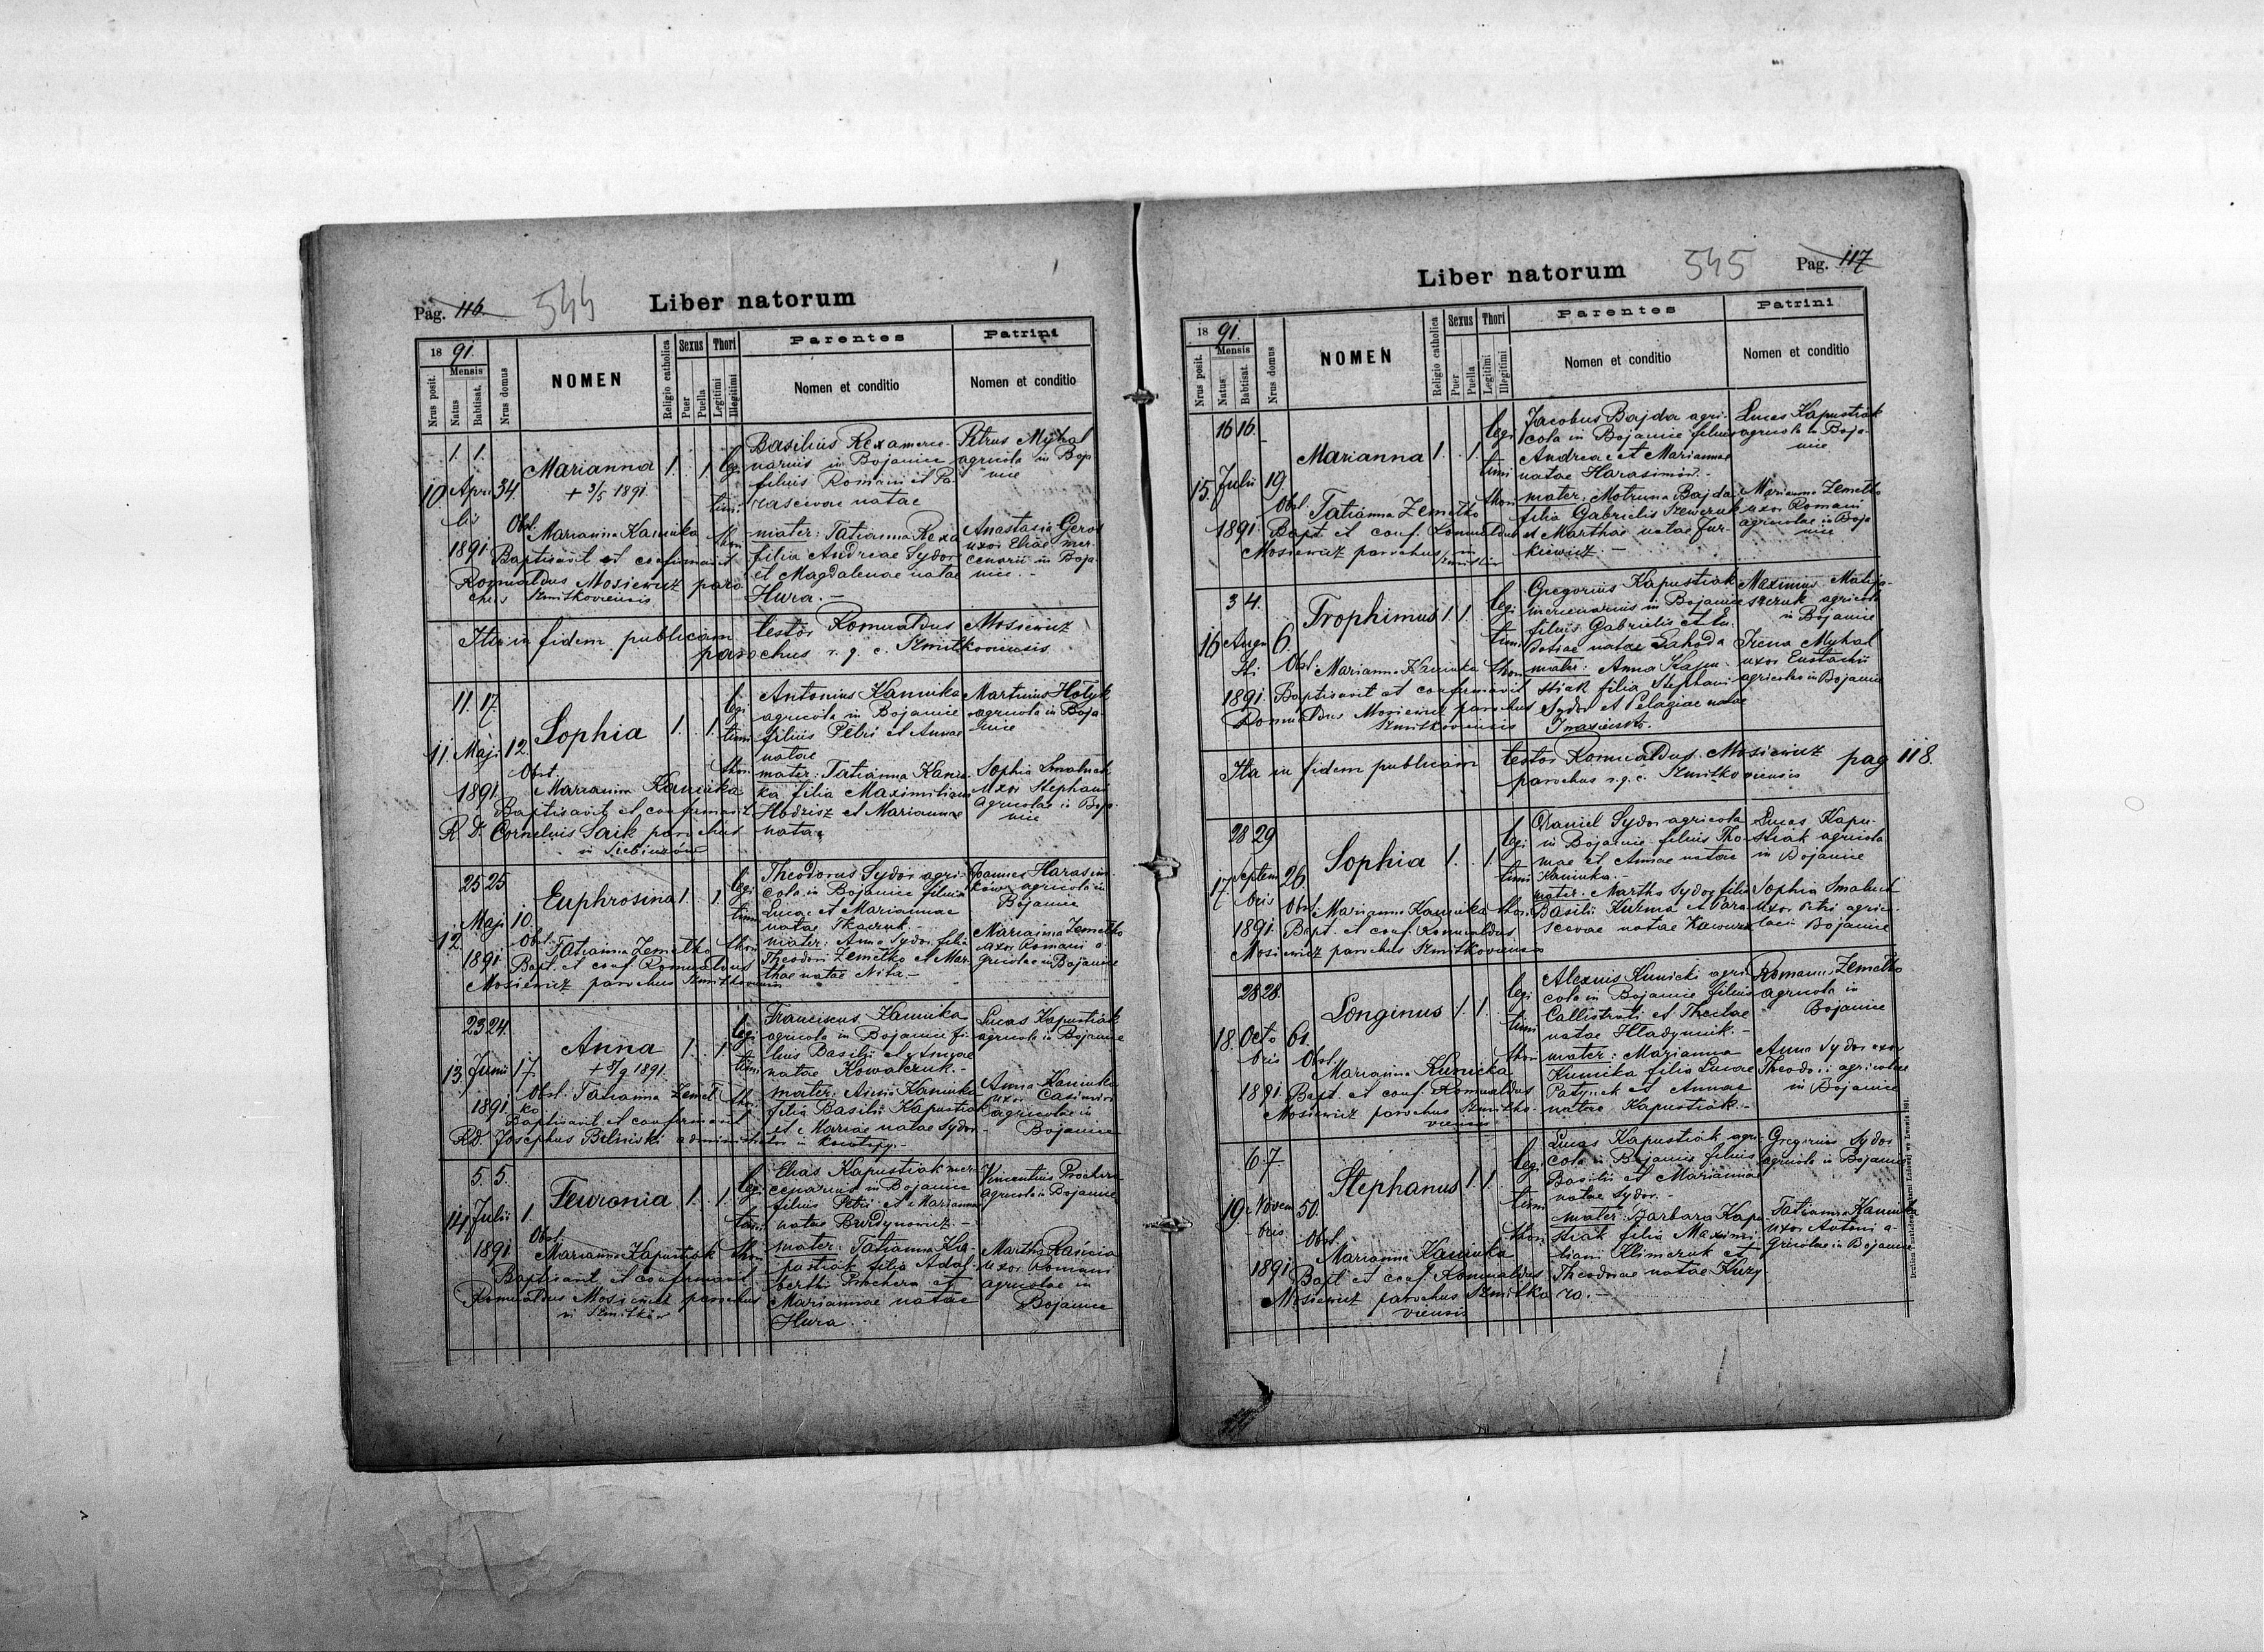 Pag. 116
544
Liber natorum
18 91.
Mensis
Nrus posit.
Natus
Babtisat.
Nrus domus
NOMEN
Religio catholica
Sexus
Puer
Puella
Thori
Legitimi
Illegitimi
Parentes
Nomen et conditio
Patrini
Nomen et conditio
10. 1. 1. Aprilis 1891 34.
Marianna 1. 1.
+ 3/5 1891
legitimi thori
Obst. Marianna Kaminka
Baptisavit et confirmavit
Romualdus Mosiewicz paro
chus Szmitkoviensis
Basilius Rexa merce-
narius in Bojanice
filius Romani et Pa
rascevae natae
mater: Tatianna Rexa
filia Andreae Sydor
et Magdalenae natae
Hura. —
Petrus Myhal
agricola in Boja
nice
Anastasia Geroś
uxor Eliae mer-
cenarii in Boja-
nice. —
Ita in fidem publicam testor Romualdus Mosiewicz
parochus r. g. c. Szmitkoviensis
11. 11. 17. Maji 1891 12.
Sophia 1. 1.
legitimi thori
Obst.
Marianna Kaminka
Baptisavit et confirmavit
R. D. Cornelius Saik parochus
in Siebieczów
Antonius Kaminka
agricola in Bojanice
filius Petri et Annae
natae
mater: Tatianna Kamin-
ka filia Maximiliani
Hodzisz et Mariannae
natae
Martinus Hołyk
agricola in Boja-
nice
Sophia Smaluch
uxor Stephani
agricolae in Boja-
nice
12. 25 25 Maji 1891 10.
Euphrosina 1. 1.
legitimi thori
Obst. Tatianna Zemełko
Bapt. et conf. Romualdus
Mosiewicz parochus Szmitkoviensis
Theodorus Sydor agri-
cola in Bojanice filius
Lucae et Mariannae
natae Tkaczuk. —
mater: Anna Sydor filia
Theodori Zemełko et Mar-
thae natae Nita. —
Joannes Harasim
ków agricola in
Bojanice
Marianna Zemełko
uxor Romani a-
gricolae in Bojanice
13. 23 24. Junii 1891 17.
Anna 1. 1.
+ 8/9 1891.
legitimi thori
Obst. Tatianna Zemeł
ko
Baptisavit et confirmavit
RD. Josephus Bilinski administrator in Konotopy. —
Franciscus Kaminka
agricola in Bojanice fi-
lius Basilii et
natae Kowalczuk. —
mater: Kaminka
filia Basilii Kapustiak
et Mariae natae Sydor. —
Lucas Kapustiak
agricola in Bojanice
Anna Kaminka
uxor Casimiri
agricolae in
Bojanice
14. 5. 5. Julii 1891 1.
Fewronia 1. 1.
legitimi thori
Obst.
Marianna Kapustiak
Baptisavit et confirmavit
Romualdus Mosiewicz parochus
in Szmitków
Elias Kapustiak mer-
cenarius in Bojanice
filius Petri et Mariannae
natae Burdynowicz. —
mater: Tatianna Ka-
pustiak filia Adal-
berthi Prochera et
Mariannae natae
Hura.
Vincentius Prochera
agricola in Bojanice
Martha
uxor Romani
agricolae in
Bojanice
Liber natorum
545
Pag. 117
18 91.
Mensis
Nrus posit.
Natus
Babtisat.
Nrus domus
NOMEN
Religio catholica
Sexus
Puer
Puella
Thori
Legitimi
Illegitimi
Parentes
Nomen et conditio
Patrini
Nomen et conditio
15. 16 16. Julii 1891 19.
Marianna 1. 1.
legitimi thori
Obst. Tatianna Zemełko
Bapt. et conf. Romualdus
Mosiewicz parochus in
Szmitków
Jacobus Bajda agri-
cola in Bojanice filius
Andreae et Mariannae
natae Harasimów. —
mater: Motruna Bajda
filia Gabrielis Szewczuk
et Marthae natae Jur-
kiewicz. —
Lucas Kapustiak
agricola in Boja-
nice
Marianna Zemełko
uxor Romani
agricolae in Boja
nice
16. 3 4. Augusti 1891. 6.
Trophimus 1. 1.
legitimi thori
Obst. Marianna Kaminka
Baptisavit et confirmavit
Romualdus Mosiewicz parochus
Szmitkoviensis
Gregorius Kapustiak
mercenarius in Bojanice
filius Gabrielis et Eu-
dosiae natae Lahoda
mater: Anna Kapu-
stiak filia Stephani
Sydor et Pelagiae natae
Maximus Matija-
szczuk agricola
in Bojanice
Irena Myhal
uxor Eustachii
agricolae in Bojanice
Ita in fidem publicam testor Romualdus Mosiewicz pag 118.
parochus r. g. c. Szmitkoviensis
17. 28 29 Septembris 1891 26.
Sophia 1. 1.
legitimi thori
Obst. Marianna Kaminka
Bapt. et conf. Romualdus
Mosiewicz parochus Szmitkoviensis
Daniel Sydor agricola
in Bojanice filius Tho-
mae et Annae natae
Kaminka. —
mater: Martha Sydor filia
Basilii Kuzma et Para
scevae natae
Lucas Kapu-
stiak agricola
in Bojanice
Sophia Smaluch
uxor Petri agrico-
lae in Bojanice
18. 28 28. Octobris 1891. 61.
Longinus 1. 1.
legitimi thori
Obst.
Marianna Kunicka
Bapt. et conf. Romualdus
Mosiewicz parochus Szmitko-
viensis
Alexius Kunicki agri-
cola in Bojanice filius
Callistrati et Theclae
natae Hładyniuk. —
mater: Marianna
Kunicka filia Lucae
Patyuk et Annae
natae Kapustiak. —
Romanus Zemełko
agricola in
Bojanice
Anna Sydor uxor
Theodori agricolae
in Bojanice
19. 6. 7. Novembris 1891 50.
Stephanus 1. 1.
legitimi thori
Obst.
Marianna Kaminka
Bapt. et conf. Romualdus
Mosiewicz parochus Szmitko
viensis
Lucas Kapustiak agri-
cola in Bojanice filius
Basilii et Mariannae
natae Sydor. —
mater: Barbara Kapu
stiak filia Maximi-
liani Klimczuk et
Theodorae natae Kuzy
ro. —
Gregorius Sydor
agricola in Bojanice
Tatianna Kaminka
uxor Antoni a-
gricolae in Bojanice